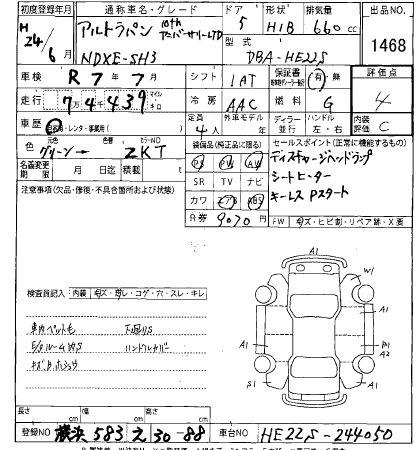 初度登録年月 通称車名・グレード ドア 形状 排気量 出品NO.
H24/6月 アルトラパン 10th アニバーサリーLTD 5 H1B 660cc 1468
NDXE-SH3 型式 DBA-HE22S
車検 R7年7月 シフト 1AT 保証書 有・無 評価点 4
走行 7万4千439 マイル キロ 冷房 AAC 燃料 G
車歴 自家用・レンタ・事業用( ) 定員 4人 外車モデル 年 ディーラー 並行 ハンドル 左・右 内装評価 C
色 元色 グリーン→ 色替 カラーNO ZKT 装備品(純正品に限る) セールスポイント(正常に機能するもの)
名義変更期限 月 日迄 積載 t PS PW AW ディスチャージヘッドランプ
注意事項(欠品・修復・不具合箇所および状態) SR TV ナビ シートヒーター
カワ エアB ABS キーレス Pスタート
R券 9070円 FW キズ・ヒビ割・リペア跡・X要
検査員記入 内装 キズ・汚レ・コゲ・穴・スレ・キレ
車内ペット毛 下廻りS
E/gルーム内S ハンドルカバー
A1
A1 W1
A1 A1
B1 A2
S1 A1
A1
長さ cm 幅 cm 高さ cm
登録NO 横浜 583 え 30-88 車台NO HE22S-244050